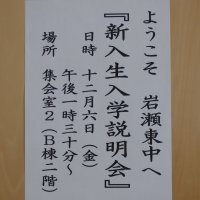 ようこそ　岩瀬東中へ
『新入生入学説明会』
日時　十二月六日（金）
午後一時三十分～
場所　集会室２（Ｂ棟二階）